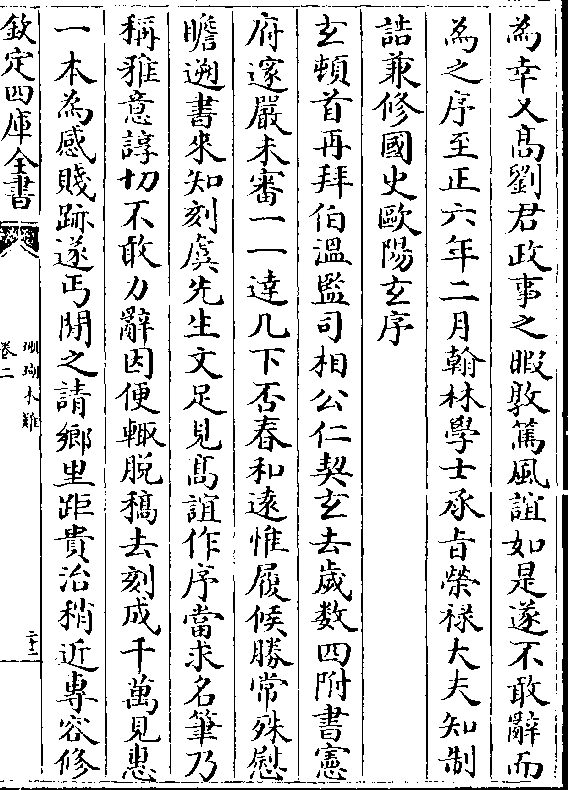 為幸又髙劉君政事之暇敦篤風誼如是遂不敢辭而
為之序至正六年二月翰林學士承㫖榮禄大夫知制
誥兼修國史歐陽玄序
玄頓首再拜伯溫監司相公仁契玄去歲数四附書憲
府邃嚴未審一一達几下否春和遠惟履候勝常殊慰
瞻遡書來知刻虞先生文足見髙誼作序當求名筆乃
稱雅意諄切不敢力辭因便輙脱稿去刻成千萬見惠
一本為感賤跡遂丐閒之請鄉里距貴治稍近專容修
欽定四庫全書
珊瑚木難
卷二
二十二